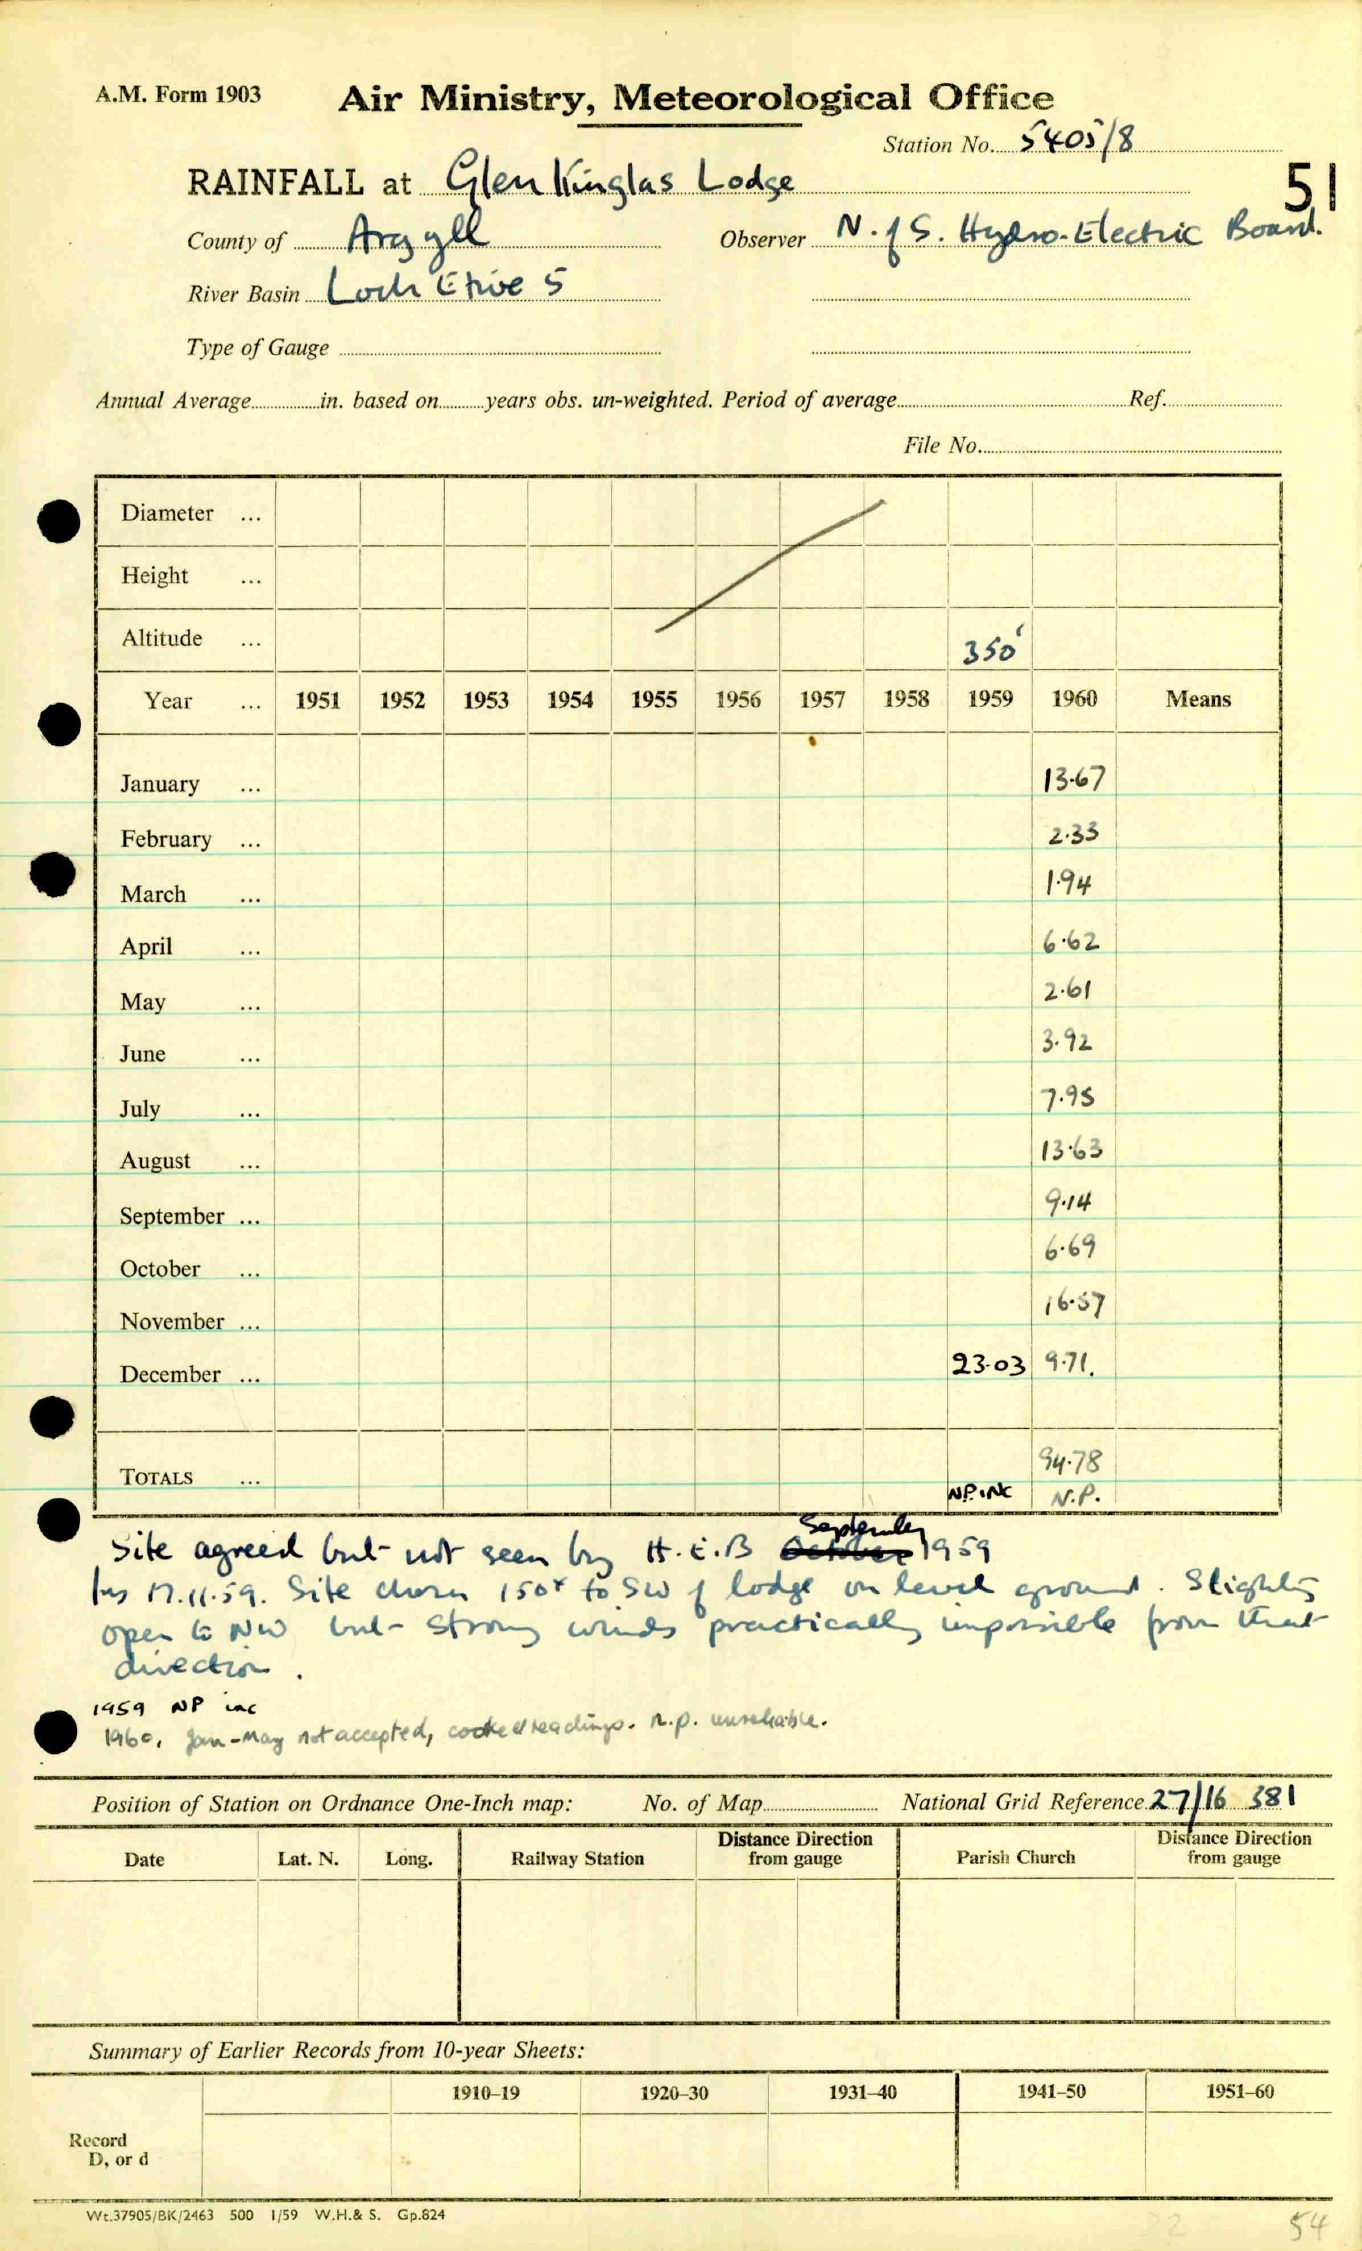 A.M. Form 1903 Air Ministry, Meteorological Office
Station No. 5405/8
RAINFALL at Glen Kinglas Lodge 51
County of Argyll Observer N. of S. Hydro-Electric Board.
River Basin Loch Etive 5
Type of Gauge
Annual Average in. based on years obs. un-weighted. Period of average Ref.
File No.
Diameter ...
Height ...
Altitude ... 350'
Year ... 1951 1952 1953 1954 1955 1956 1957 1958 1959 1960 Means
January ... 13.67
February ... 2.33
March ... 1.94
April ... 6.62
May ... 2.61
June ... 3.92
July ... 7.95
August ... 13.63
September ... 9.14
October ... 6.69
November ... 16.57
December ... 23.03 9.71.
TOTALS ... 94.78
N.P. INC N.P.
September
Site agreed but not seen by H.E.B October 1959
Ins 17.11.59. Site chosen 150x to SW of lodge on level ground. Slightly
open to NW but strong winds practically impossible from that
direction.
1959 NP inc
1960. Jan-May not accepted, cooked readings. n.p. unreliable.
Position of Station on Ordnance One-Inch map: No. of Map National Grid Reference 27/16 381
Date Lat. N. Long. Railway Station Distance Direction from gauge Parish Church Distance Direction from gauge
Summary of Earlier Records from 10-year Sheets:
1910–19 1920–30 1931–40 1941–50 1951–60
Record
D, or d
Wt.37905/BK/2463 500 1/59 W.H.& S. Gp.824
22 54